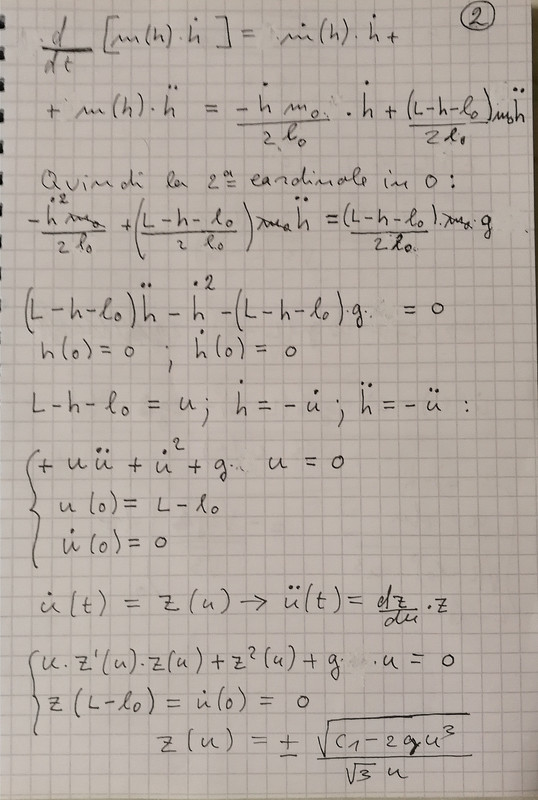 ②
d/dt [m(h)·ḣ] = ṁ(h)·ḣ +
+ m(h)·ḧ = -ḣ m₀/2l₀ · ḣ + (L-h-l₀)/2l₀ m₀ḧ
Quindi la 2ª cardinale in 0:
-ḣ² m₀/2l₀ + ((L-h-l₀)/2l₀) m₀ḧ = (L-h-l₀)/2l₀ · m₀·g
(L-h-l₀)ḧ - ḣ² - (L-h-l₀)·g = 0
h(0) = 0 ; ḣ(0) = 0
L-h-l₀ = u; ḣ = -u̇; ḧ = -ü :
+ uü + u̇² + g·· u = 0
u(0) = L-l₀
u̇(0) = 0
u̇(t) = z(u) → ü(t) = dz/du · z
u·z'(u)·z(u) + z²(u) + g· ·u = 0
z(L-l₀) = u̇(0) = 0
z(u) = ± √(C1-2gu³)/√3 u